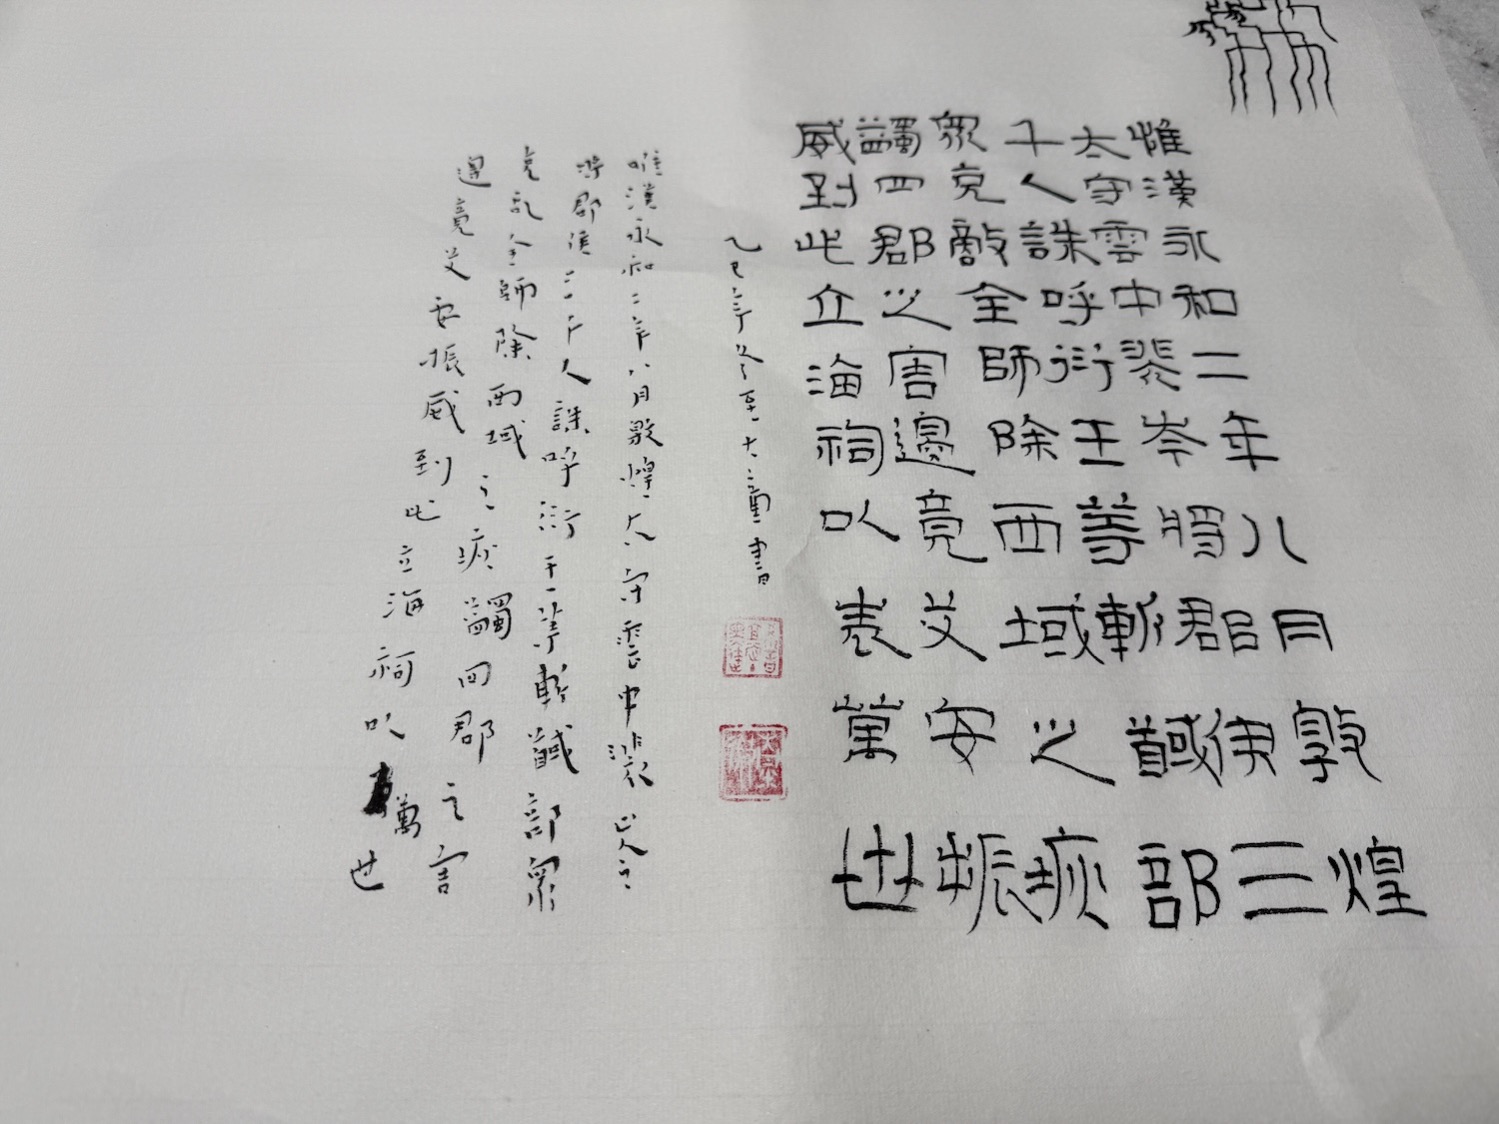 惟漢永和二年八月敦煌
太守雲中裴岑將郡兵三
千人誅呼衍王等斬馘部
眾克敵全師除西域之疢
蠲四郡之害邊竟艾安振
威到此立海祠以表萬世
乙巳年冬至大童書
唯漢永和二年八月敦煌太守雲中裴岑之
將郡三千人誅呼衍王等斬馘部眾
克全師除西域之疢蠲四郡之害
邊竟艾安振威到此立海祠以萬世